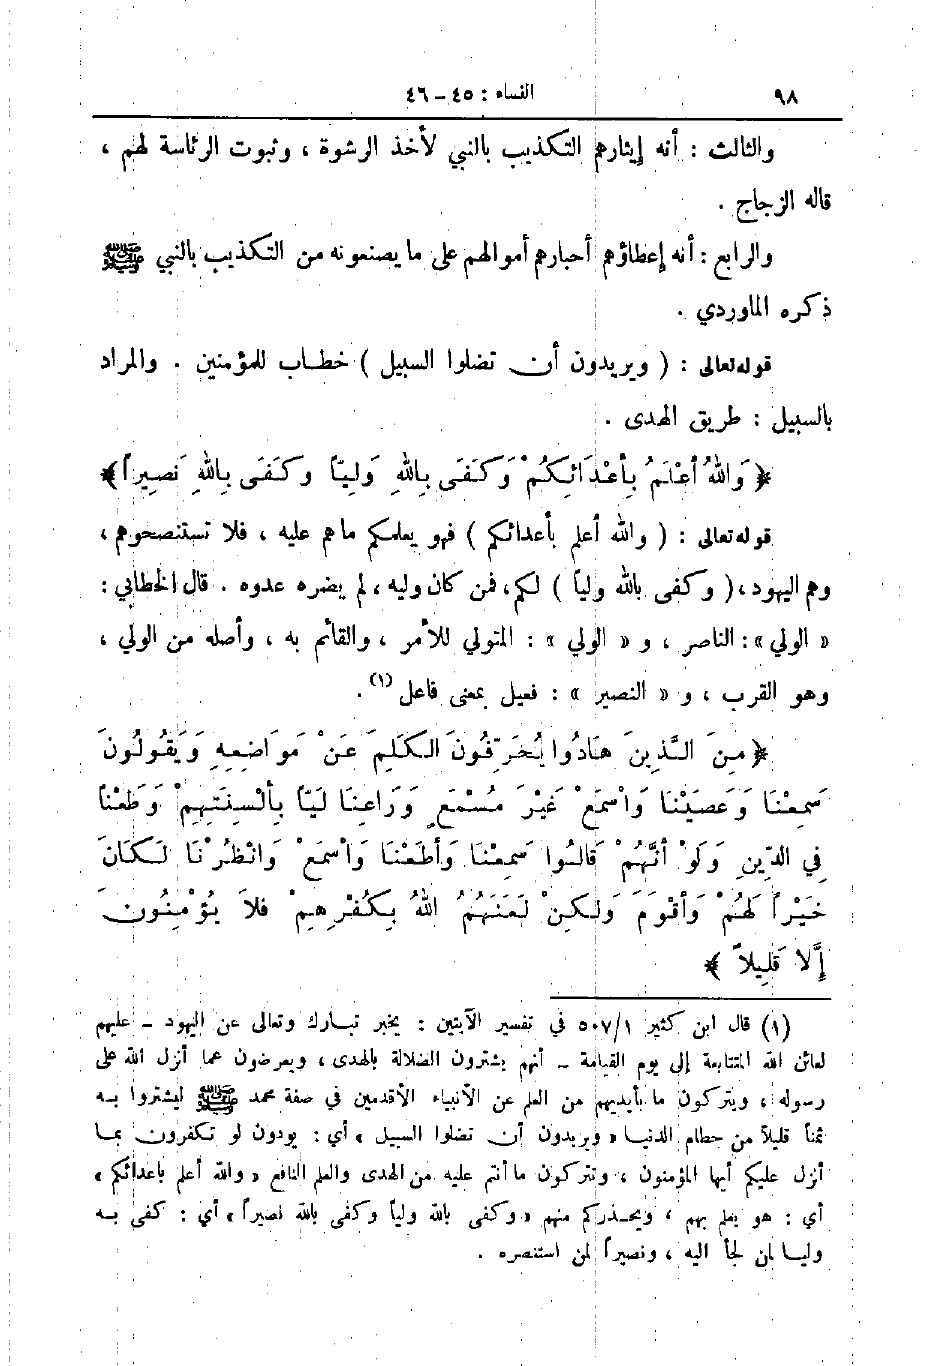 ٩٨ النساء : ٤٥ – ٤٦
والثالث : أنه إيثارهم التكذيب بالنبي لأخذ الرشوة ، وثبوت الرئاسة لهم ،
قاله الزجاج .
والرابع : أنه إعطاؤهم أحبارهم أموالهم على ما يصنعونه من التكذيب بالنبي ﷺ
ذكره الماوردي .
قوله تعالى : ( ويريدون أن تضلوا السبيل ) خطاب للمؤمنين . والمراد
بالسبيل : طريق الهدى .
﴿ وَاللهُ أَعْلَمُ بِأَعْدَائِكُمْ وَكَفَى بِاللهِ وَلِيّاً وَكَفَى بِاللهِ نَصِيراً ﴾
قوله تعالى : ( والله أعلم بأعدائكم ) فهو يعلمكم ماهم عليه ، فلا تستنصحوهم ،
وهم اليهود ، ( وكفى بالله ولياً ) لكم، فمن كان وليه ، لم يضره عدوه . قال الخطابي :
« الولي » : الناصر ، و « الولي » : المتولي للأمر ، والقائم به ، وأصله من الولي ،
وهو القرب ، و « النصير » : فعيل بمعنى فاعل (١) .
﴿ مِنَ الَّذِينَ هَادُوا يُحَرِّفُونَ الكَلِمَ عَنْ مَوَاضِعِهِ وَيَقُولُونَ
سَمِعْنَا وَعَصَيْنَا وَاسْمَعْ غَيْرَ مُسْمَعٍ وَرَاعِنَا لَيّاً بِأَلْسِنَتِهِمْ وَطَعْناً
فِي الدِّينِ وَلَوْ أَنَّهُمْ قَالُوا سَمِعْنَا وَأَطَعْنَا وَاسْمَعْ وَانْظُرْنَا لَكَانَ
خَيْراً لَهُمْ وَأَقْوَمَ وَلَكِنْ لَعَنَهُمُ اللهُ بِكُفْرِهِمْ فَلَا يُؤْمِنُونَ
إِلَّا قَلِيلاً ﴾
(١) قال ابن كثير ٥٠٧/١ في تفسير الآيتين : يخبر تبارك وتعالى عن اليهود – عليهم
لعائن الله المتتابعة إلى يوم القيامة – أنهم يشترون الضلالة بالهدى ، ويعرضون عما أنزل الله على
رسوله ، ويتركون ما بأيديهم من العلم عن الأنبياء الأقدمين في صفة محمد ﷺ ليشتروا به
ثمناً قليلاً من حطام الدنيا « ويريدون أن تضلوا السبيل » أي : يودون لو تكفرون بما
أنزل عليكم أيها المؤمنون ، وتتركون ما أنتم عليه من الهدى والعلم النافع « والله أعلم بأعدائكم »
أي : هو يعلم بهم ، ويحذركم منهم « وكفى بالله ولياً وكفى بالله نصيراً » أي : كفى به
وليا لمن لجأ اليه ، ونصيراً لمن استنصره .